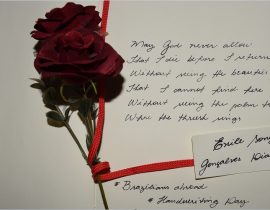 May God never allow
That I die before I return
Without seeing the beauties
That I cannot find here
Without seeing the palm tr
Where the thrush sings
Exile Song
Gonçalves Dias
* Brazilians abroad
* Handwriting Day